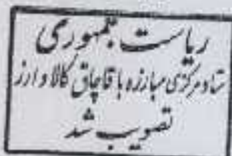 ریاست جمهوری
ستاد مرکزی مبارزه با قاچاق کالا و ارز
تصویب شد